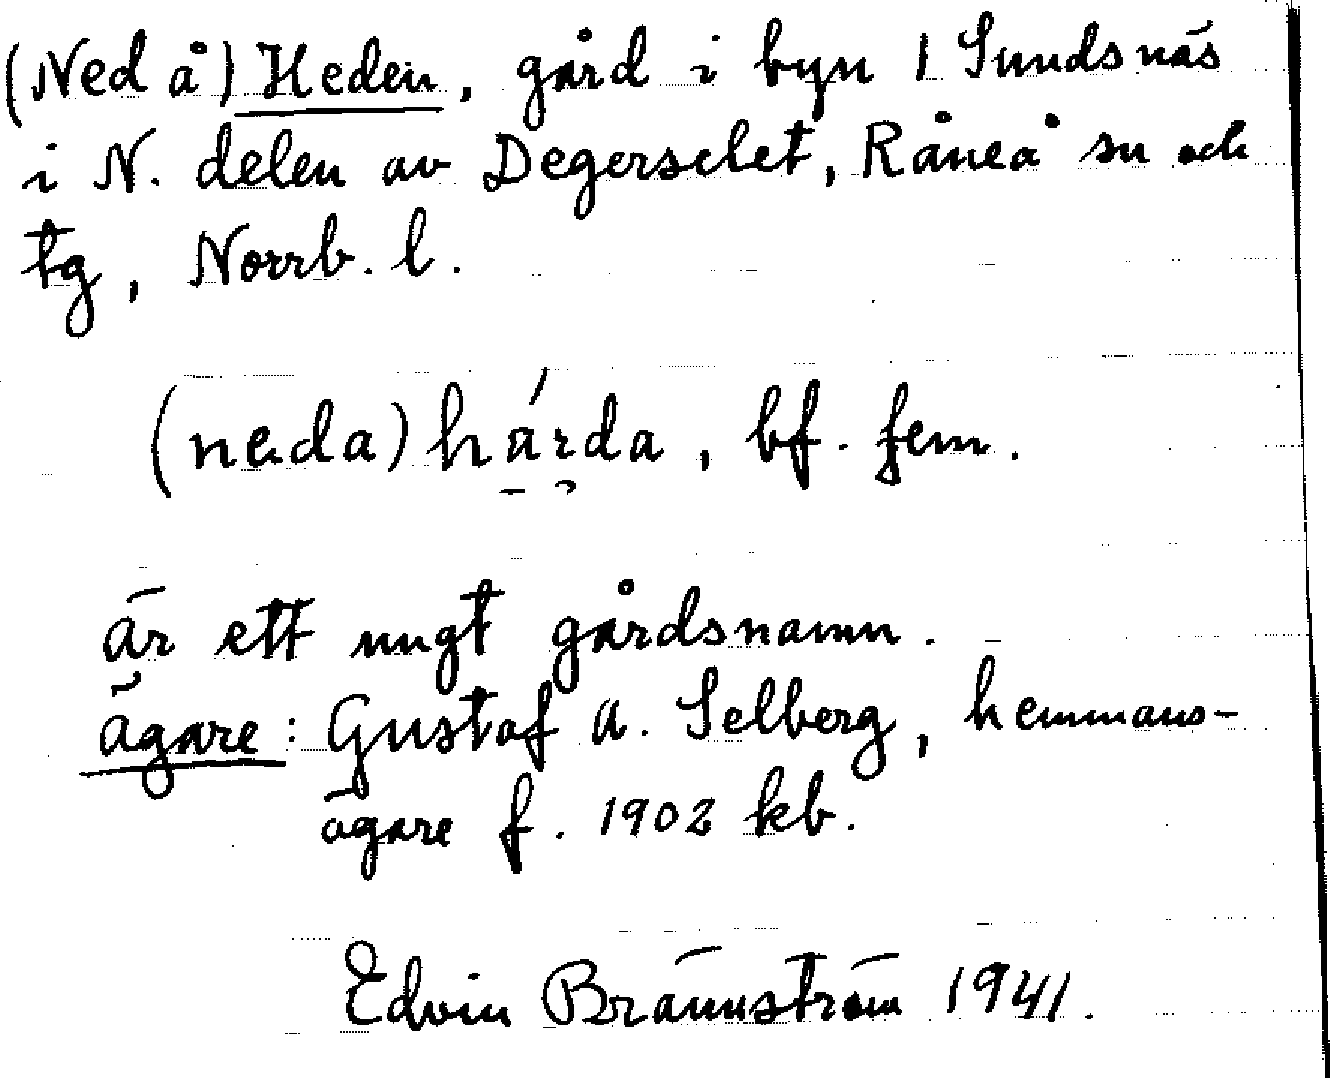 (Ned å) Heden, gård i byn 1 Sundsnäs
i N. delen av Degerselet, Råneå sn och
tg, Norrb. l.
(neda) hárda, bf. fem.
är ett nugt gårdsnamn.
ägare: Gustaf A. Selberg, hemmans-
ägare f. 1902 kb.
Edvin Brännström 1941.